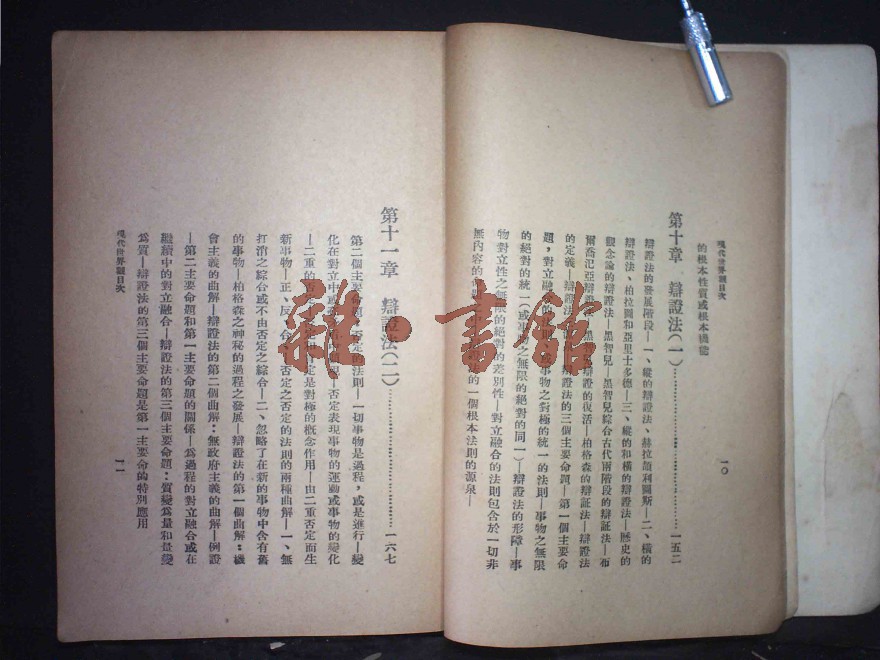 現代世界觀目次
一〇
的根本性質或根本機能
第十章 辯證法(一)……………………一五二
辯證法的發展階段—一、縱的辯證法、赫拉頡利圖斯—二、橫的
辯證法、柏拉圖和亞里士多德—三、縱的和橫的辯證法—歷史的
觀念論的辯證法—黑智兒—黑智兒綜合古代兩階段的辯証法—布
爾喬氾亞辯證
辯證的復活—柏格森的辯証法—辯證法
的定義—辯證法
辯證法的三個主要命題—第一個主要命
題,對立融
事物之對極的統一的法則—事物之無限
的絕對的統一(或事
之無限的絕對的同一)—辯證法的形障—事
物對立性之無限的絕對的差別性—對立融合的法則包含於一切非
無內容的命
的一個根本法則的源泉—
雜·書館
第十一章 辯證法(二)……………………一六七
第二個主要命題:否定的法則—一切事物是過程,或是進行—變
化在對立中或
—否定表現事物的運動或事物的變化
—二重的否
定是對極的概念作用—由二重否定而生
新事物—正、反、合
否定之否定的法則的兩種曲解—一、無
打消之綜合或不由否定之綜合—二、忽略了在新的事物中含有舊
的事物—柏格森之神秘的過程之發展—辯證法的第一個曲解:機
會主義的曲解—辯證法的第二個曲解:無政府主義的曲解—例證
—第二主要命題和第一主要命題的關係—爲過程的對立融合或在
繼續中的對立融合—辯證法的第三個主要命題:質變爲量和量變
爲質—辯證法的第三個主要命題是第一主要命的特別應用
現代世界觀目次
一一